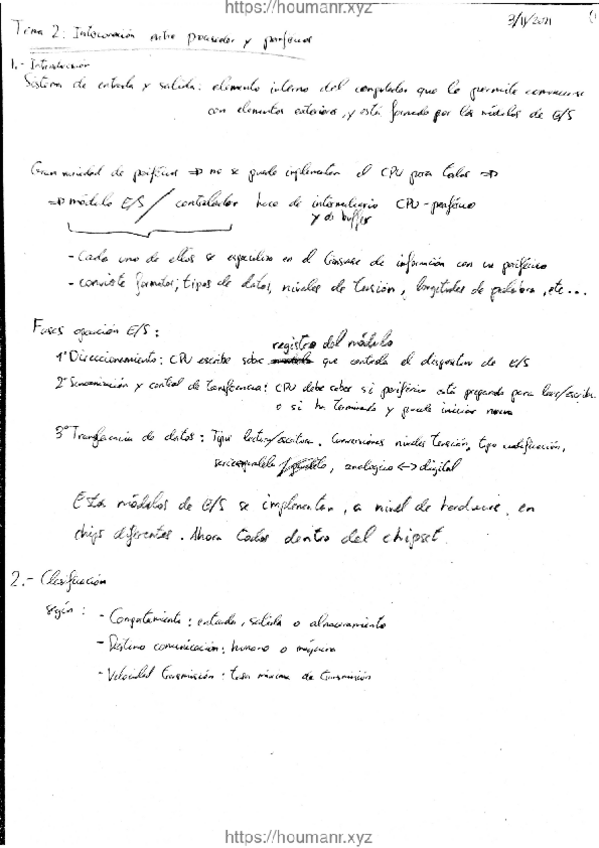 https://houmanr.xyz
3/11/2011
Tema 2: Interconexión entre procesador y periféricos
1.- Introducción
Sistema de entrada y salida: elemento interno del computador que le permite comunicarse
con elementos exteriores, y está formado por los módulos de E/S
Gran variedad de periféricos => no se puede implementar el CPU para todos =>
=> módulo E/S / controlador hace de intermediario CPU-periférico
y de buffer
- Cada uno de ellos se especializa en el trasvase de información con un periférico
- convierte formatos, tipos de datos, niveles de tensión, longitudes de palabra, etc...
Fases operación E/S:
registro del módulo
1º Direccionamiento: CPU escribe sobre que controla el dispositivo de E/S
2º Sincronización y control de transferencia: CPU debe saber si periférico está preparado para leer/escribir
o si ha terminado y puede iniciar nueva
3º Transferencia de datos: Tipo lectura/escritura. Conversiones niveles tensión, tipo codificación,
serie-paralelo, analógico <-> digital
Estos módulos de E/S se implementan, a nivel de hardware, en
chips diferentes. Ahora todos dentro del chipset.
2.- Clasificación
según: - Comportamiento: entrada, salida o almacenamiento
- Destino comunicación: humano o máquina
- Velocidad transmisión: tasa máxima de transmisión
https://houmanr.xyz